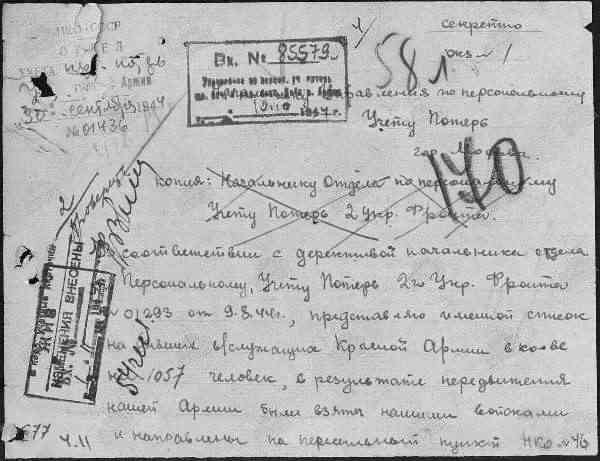 НКО СССР
ОТДЕЛ
Армии
"30" сентября 1944
№ 01436
секретно
экз. № 1
Вх. № 85579
1944 г.
58 л.
Управления по персональному
Учету Потерь
гор. Москва.
140
копия: Начальнику Отдела по персональному
Учету Потерь 2 Укр. Фронта.
В соответствии с дерективой начальника отдела
Персональному, Учету Потерь 2го Укр. Фронта
№ 01293 от 9.8.44г., представляю именной список
на бывших в/служащих Красной Армии в кол-ве
1057 человек, в результате передвижения
нашей Армии были взяты нашими войсками
и направлены на пересыльный пункт НКО № 46
ИЗМЕНЕНИЯ ВНЕСЕНЫ
ЖИВ
677
4.11